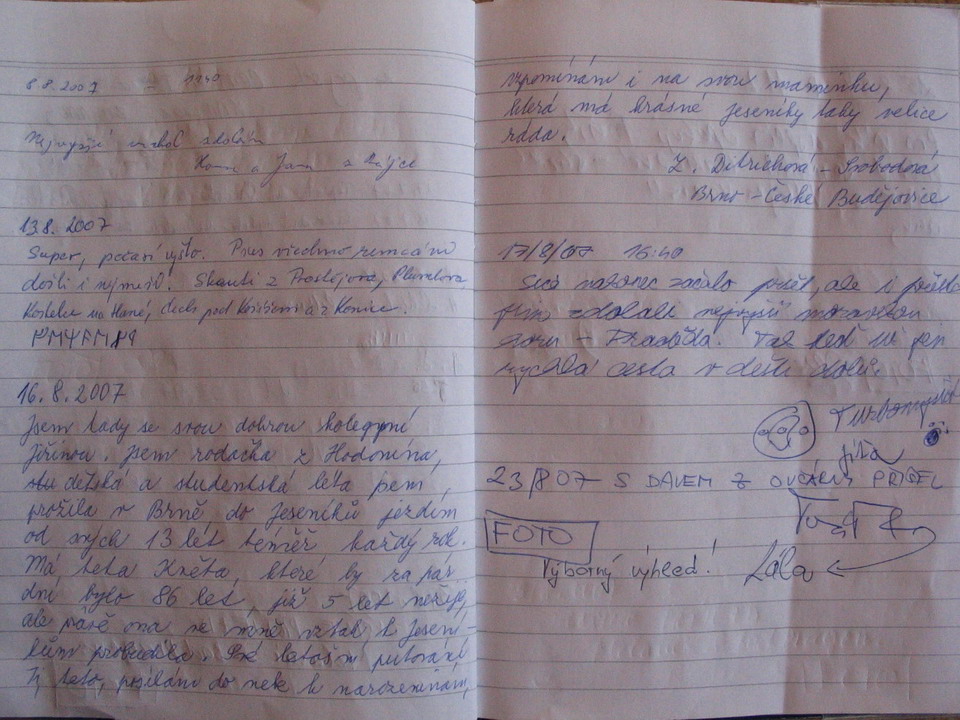 8.8.2007 - 1140
Nejvyšší vrchol zdolán
Hana a Jana z
13.8.2007
Super, počasí vyšlo. Přes všechno remcání
došli i nejmenší. Skauti z Prostějova, Plumlova
Kostelce na Hané, pod Kosířem a z Konice.
16.8.2007
Jsem tady se svou dobrou kolegyní
Jiřinou. Jsem rodačka z Hodonína,
dětská a studentská léta jsem
prožila v Brně do Jeseníků jezdím
od svých 13 let téměř každý rok.
Má teta Květa, které by za pár
dní bylo 86 let, již 5 let nežije,
ale právě ona ve mně vztah k Jesení-
kům probudila. Své letošní putování,
Ti, teto, posílám do nebe k narozeninám,
vzpomínám i na svou maminku,
která má krásné Jeseníky taky velice
ráda.
Z. Ditrichová - Svobodová
Brno - České Budějovice
17/8/07 16:40
Sice nakonec začalo pršet, ale i přesto
jsme zdolali nejvyšší moravskou
horu - Praděda. Tak teď už jen
rychlá cesta v dešti dolů.
Jíťa
23/807 S DAVEM Z OVČÁRNY PŘIŠEL
FOTO
Výborný výhled! Lála